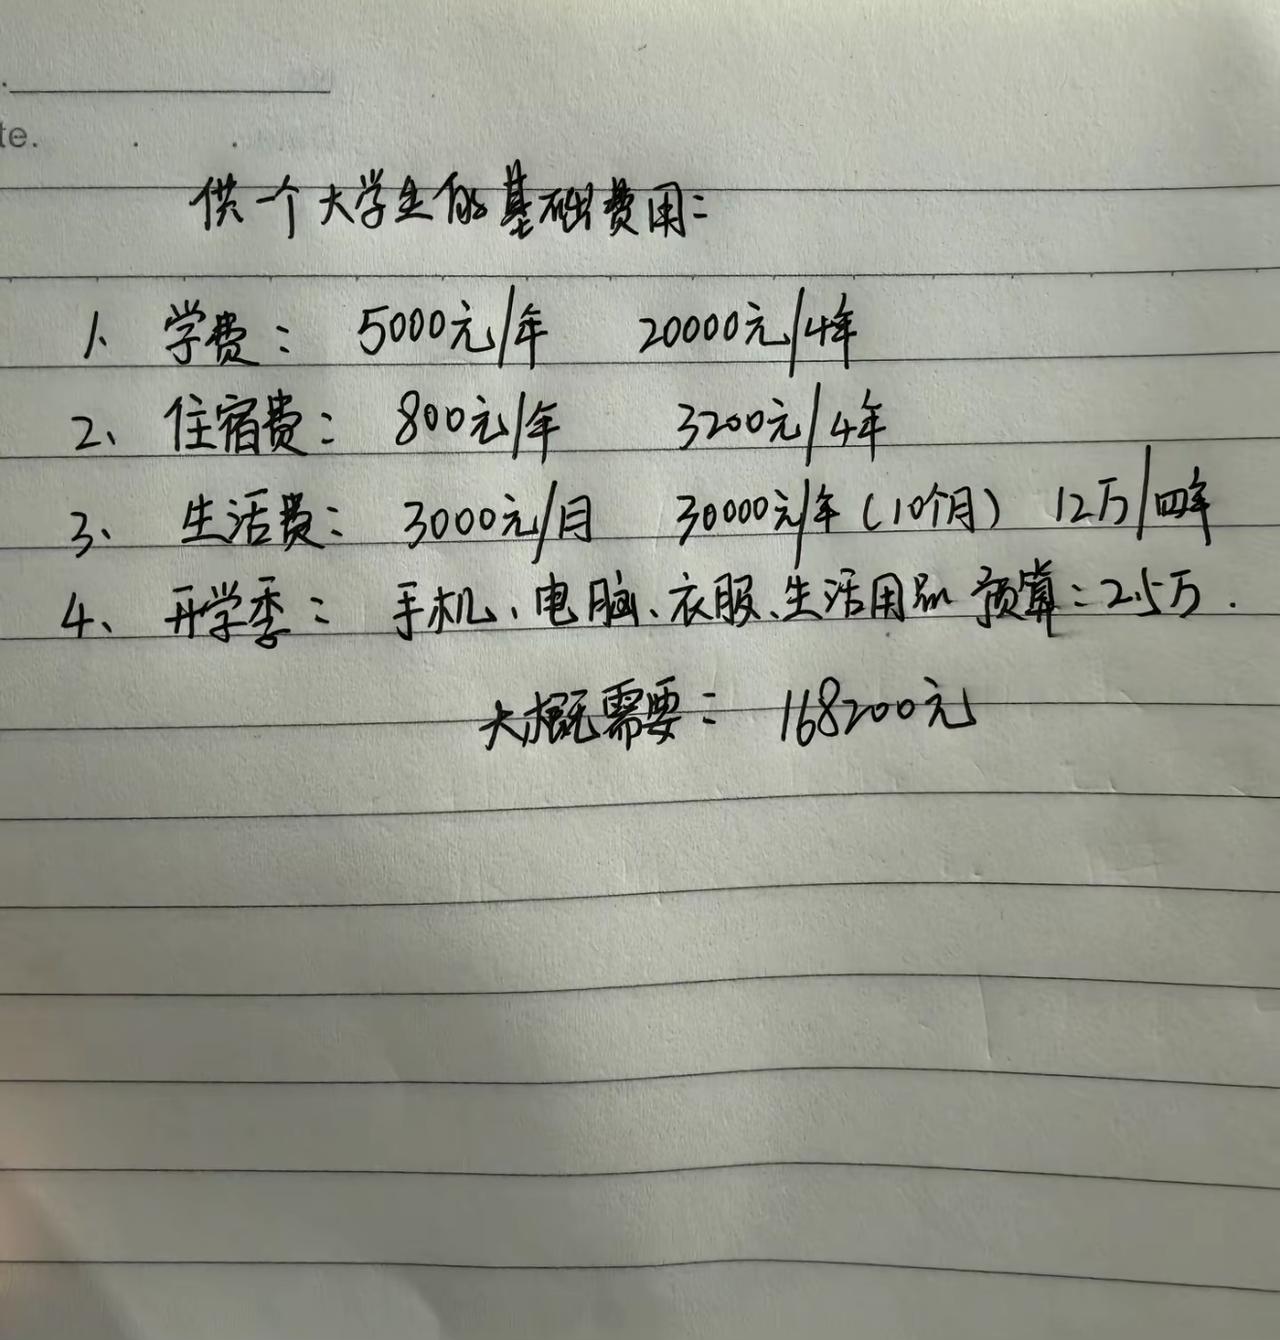 te.
供一个大学生的基础费用：
1、学费： 5000元/年 20000元/4年
2、住宿费： 800元/年 3200元/4年
3、生活费： 3000元/月 30000元/年（10个月） 12万/四年
4、开学季： 手机、电脑、衣服、生活用品 预算：2.5万.
大概需要： 168200元